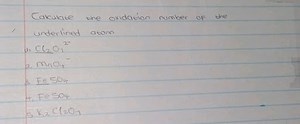 Calculate the oxidation number of the
underlined atom
1. Cl₂O₇²⁻
2. MnO₄⁻
3. FeSO₄
4. FeSO₄
5. K₂Cl₂O₇